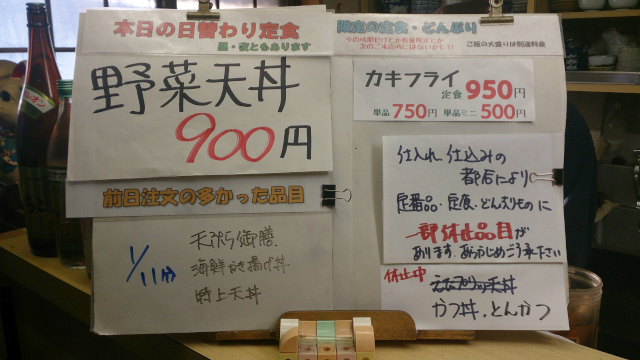 本日の日替わり定食
昼・夜ともあります
野菜天丼
900円
前日注文の多かった品目
1/11分
天ぷら御膳
海鮮かき揚げ丼
特上天丼
限定の定食・どんぶり
ご飯の大盛りは別途料金
カキフライ
定食 950円
単品 750円 単品ミニ 500円
仕入れ 仕込みの
都合により
定番品・定食・どんぶりものに
一部休止品目が
あります。あらかじめご了承下さい
休止中
カツ丼、とんかつ